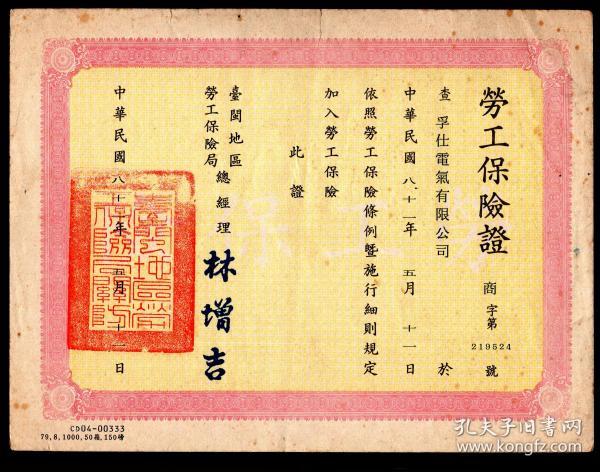 勞工保險證
商字第219524號
查 孚仕電氣有限公司 於
中華民國八十一年五月十一日
依照勞工保險條例暨施行細則規定
加入勞工保險
此證
臺閩地區
勞工保險局
總經理 林增吉
中華民國八十一年五月十一日
CD04-00333
79,8,1000,50箱,150磅
孔夫子旧书网
kongfz.com